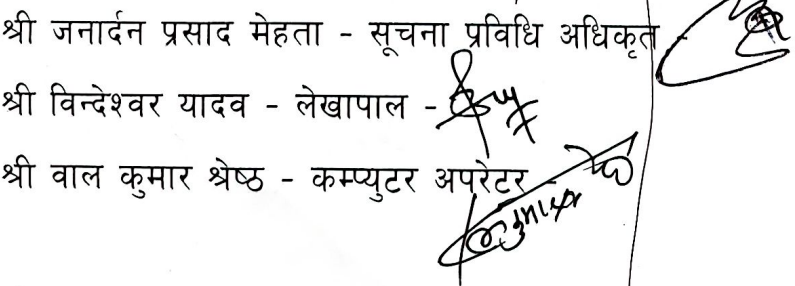 श्री जनार्दन प्रसाद मेहता - सूचना प्रविधि अधिकृत -
श्री विन्देश्वर यादव - लेखापाल -
श्री वाल कुमार श्रेष्ठ - कम्प्युटर अपरेटर -